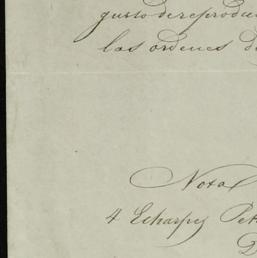 gusto de reproduci
las ordenes de
Nota
4 Echarpes Pet
2